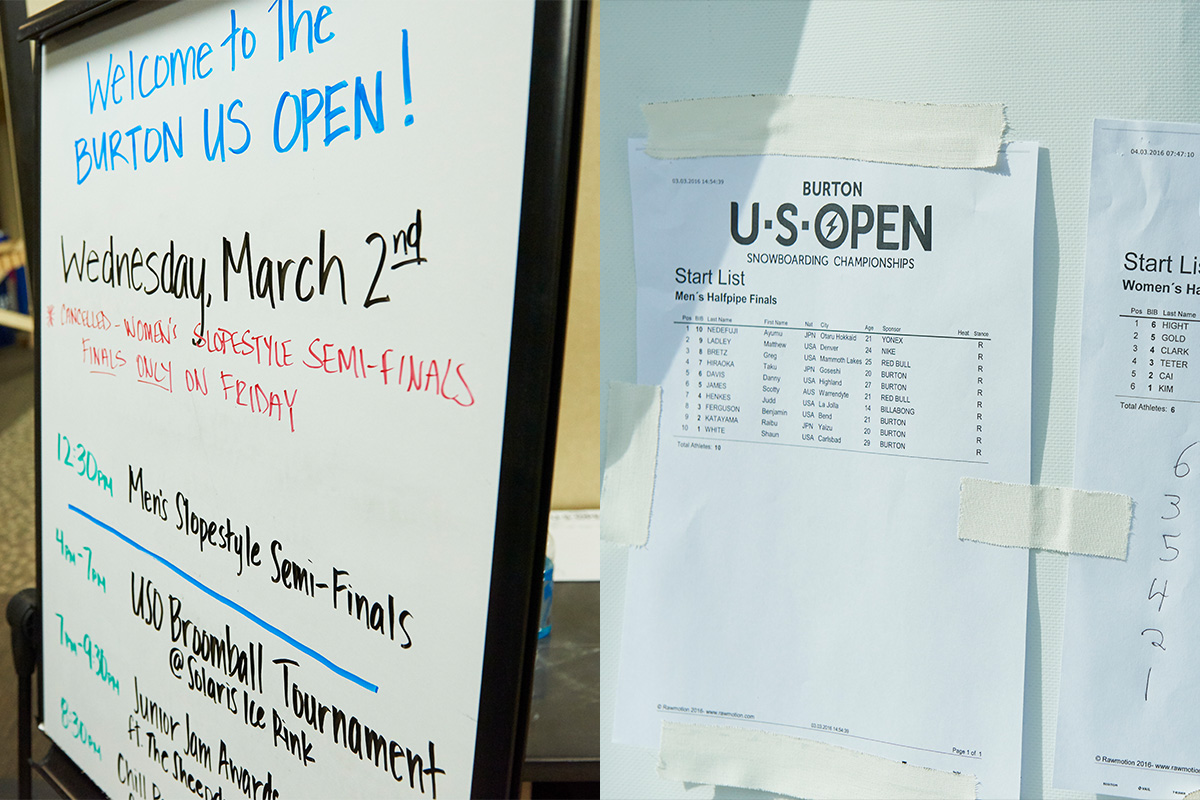 Welcome to The
BURTON US OPEN!
Wednesday, March 2nd
* CANCELLED - WOMEN'S SLOPESTYLE SEMI-FINALS
FINALS ONLY ON FRIDAY
12:30PM Men's Slopestyle Semi-Finals
4PM-7PM USO Broomball Tournament
@ Solaris Ice Rink
7PM-9:30PM Junior Jam Awards
ft. The
8:30PM Chill
03.03.2016 14:54:39
BURTON
U·S·OPEN
SNOWBOARDING CHAMPIONSHIPS
Start List
Men´s Halfpipe Finals
Pos BIB Last Name First Name Nat City Age Sponsor Heat Stance
1 10 NEDEFUJI Ayumu JPN Otaru Hokkaid 21 YONEX R
2 9 LADLEY Matthew USA Denver 24 NIKE R
3 8 BRETZ Greg USA Mammoth Lakes 25 RED BULL R
4 7 HIRAOKA Taku JPN Goseshi 20 BURTON R
5 6 DAVIS Danny USA Highland 27 BURTON R
6 5 JAMES Scotty AUS Warrendyte 21 RED BULL R
7 4 HENKES Judd USA La Jolla 14 BILLABONG R
8 3 FERGUSON Benjamin USA Bend 21 BURTON R
9 2 KATAYAMA Raibu JPN Yaizu 20 BURTON R
10 1 WHITE Shaun USA Carlsbad 29 BURTON R
Total Athletes: 10
© Rawmotion 2016- www.rawmotion.com 03.03.2016 14:54:39 Page 1 of 1
04.03.2016 07:47:10
Start
Women's
Pos BIB Last Name
1 6 HIGHT
2 5 GOLD
3 4 CLARK
4 3 TETER
5 2 CAI
6 1 KIM
Total Athletes: 6
6
3
5
4
2
1
© Rawmotion 2016-